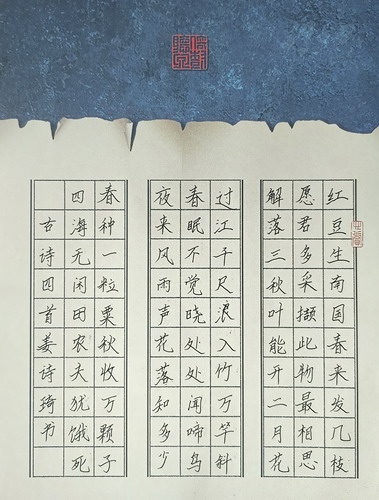 红豆生南国春来发几枝
愿君多采撷此物最相思
解落三秋叶能开二月花
过江千尺浪入竹万竿斜
春眠不觉晓处处闻啼鸟
夜来风雨声花落知多少
春种一粒粟秋收万颗子
四海无闲田农夫犹饿死
古诗四首姜诗琦节